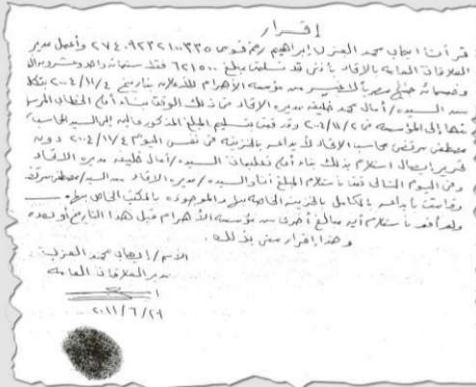 إقرار
أقر أنا إيهاب محمد العزب إبراهيم رقم قومى ٢٧٤٠٩٢٣٢١٠٠٣٣٥ وأعمل مدير
العلاقات العامه بالإفاد بأننى قد تسلمت مبلغ ٦٢١٥٠٠ فقط ستمائة واحد وعشرون ألف
وخمسمائة جنيه مصرياً لاغير من مؤسسه الأهرام للإعلان بتاريخ ٢٠٠٤/١١/٤
من السيده / آمال محمد خليفه مديره الإفاد فى ذلك الوقت بناء على الخطاب المرسل
منها إلى المؤسسه فى ٢٠٠٤/١١/٢ وقد قمت بتسليم المبلغ المذكور عاليه إلى السيد المحاسب
مصطفى مرتضى محاسب الإفاد لإيداعه بالخزينه فى نفس اليوم ٢٠٠٤/١١/٤ دون
تحرير إيصال استلام بذلك بناء على تعليمات السيده / آمال خليفه مديره الإفاد
وفى اليوم التالى قمنا باستلام المبلغ أنا والسيده / مديره الإفاد من السيد / مصطفى مرتضى
وقامت بإيداعه بالكامل بالخزينه الخاصه بها والموجوده بالمكتب الخاص بها
ولم أقم باستلام أيه مبالغ أخرى من مؤسسه الأهرام قبل هذا التاريخ أو بعده
وهذا إقرار منى بذلك .
الاسم / إيهاب محمد العزب
مدير العلاقات العامه
٢٠١١/٦/٢٩